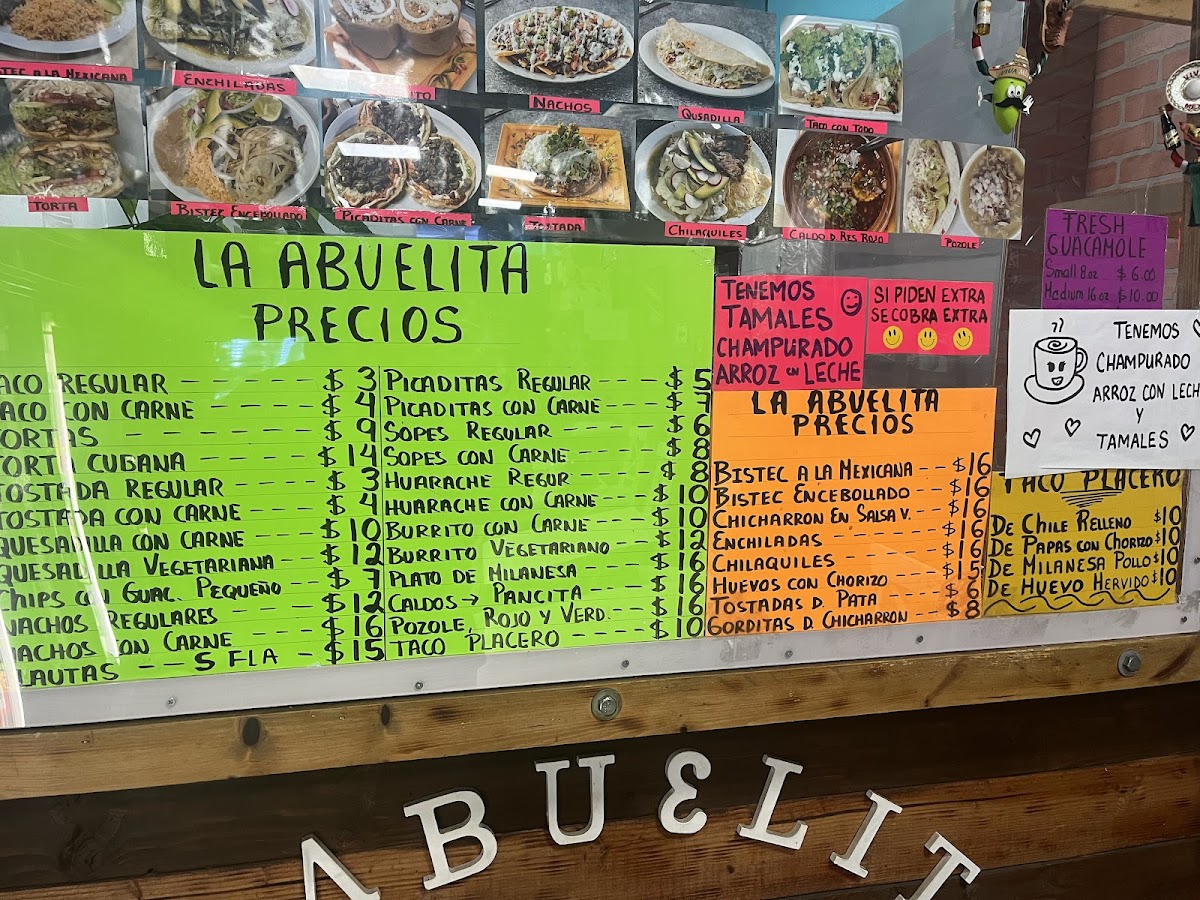 STEC A LA MEXICANA
ENCHILADAS
ITO
NACHOS
QUSADILLA
TACO CON TODO
TORTA
BISTEC ENCEBOLLADO
PICADITAS CON CARNE
TOSTADA
CHILAQUILES
CALDO D. RES ROJO
POZOLE
LA ABUELITA
PRECIOS
ACO REGULAR - - - - - - $ 3
ACO CON CARNE - - - - - $ 4
TORTAS - - - - - - $ 9
TORTA CUBANA - - - - - $ 14
TOSTADA REGULAR - - - - $ 3
TOSTADA CON CARNE - - - - $ 4
QUESADILLA CON CARNE - - - - $ 10
QUESADILLA VEGETARIANA - - - $ 12
CHIPS CON GUAC. PEQUEÑO - - - $ 7
NACHOS REGULARES - - - - $ 12
NACHOS CON CARNE - - - - $ 16
LAUTAS - - 5 FLA - $ 15
PICADITAS REGULAR - - - - $ 5
PICADITAS CON CARNE - - - $ 7
SOPES REGULAR - - - - $ 6
SOPES CON CARNE - - - - $ 8
HUARACHE REGUR - - - - $ 8
HUARACHE CON CARNE - - - $ 10
BURRITO CON CARNE - - - - $ 10
BURRITO VEGETARIANO - - - $ 12
PLATO DE MILANESA - - - - $ 16
CALDOS → PANCITA - - - - $ 16
POZOLE, ROJO Y VERD. - - - $ 16
TACO PLACERO - - - - $ 10
TENEMOS
TAMALES
CHAMPURADO
ARROZ CON LECHE
SI PIDEN EXTRA
SE COBRA EXTRA
LA ABUELITA
PRECIOS
BISTEC A LA MEXICANA - - $16
BISTEC ENCEBOLLADO - - $16
CHICHARRON EN SALSA V. - - $16
ENCHILADAS - - - - $16
CHILAQUILES - - - - $16
HUEVOS CON CHORIZO - - - $15
TOSTADAS D. PATA - - - $6
GORDITAS D. CHICHARRON - - $8
FRESH
GUACAMOLE
Small 8 oz $ 6.00
Medium 16 oz $ 10.00
TENEMOS
CHAMPURADO
ARROZ CON LECHE
Y
TAMALES
TACO PLACERO
DE CHILE RELLENO $10
DE PAPAS CON CHORIZO $10
DE MILANESA POLLO $10
DE HUEVO HERVIDO $10
ABUELIT